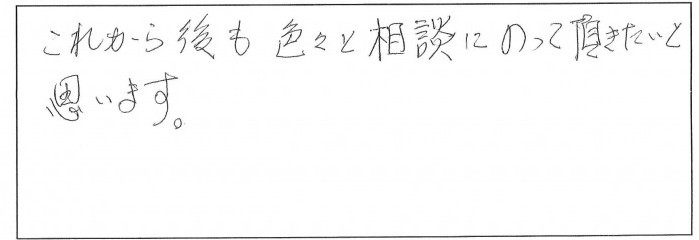 これから後も色々と相談にのって頂きたいと
思います。